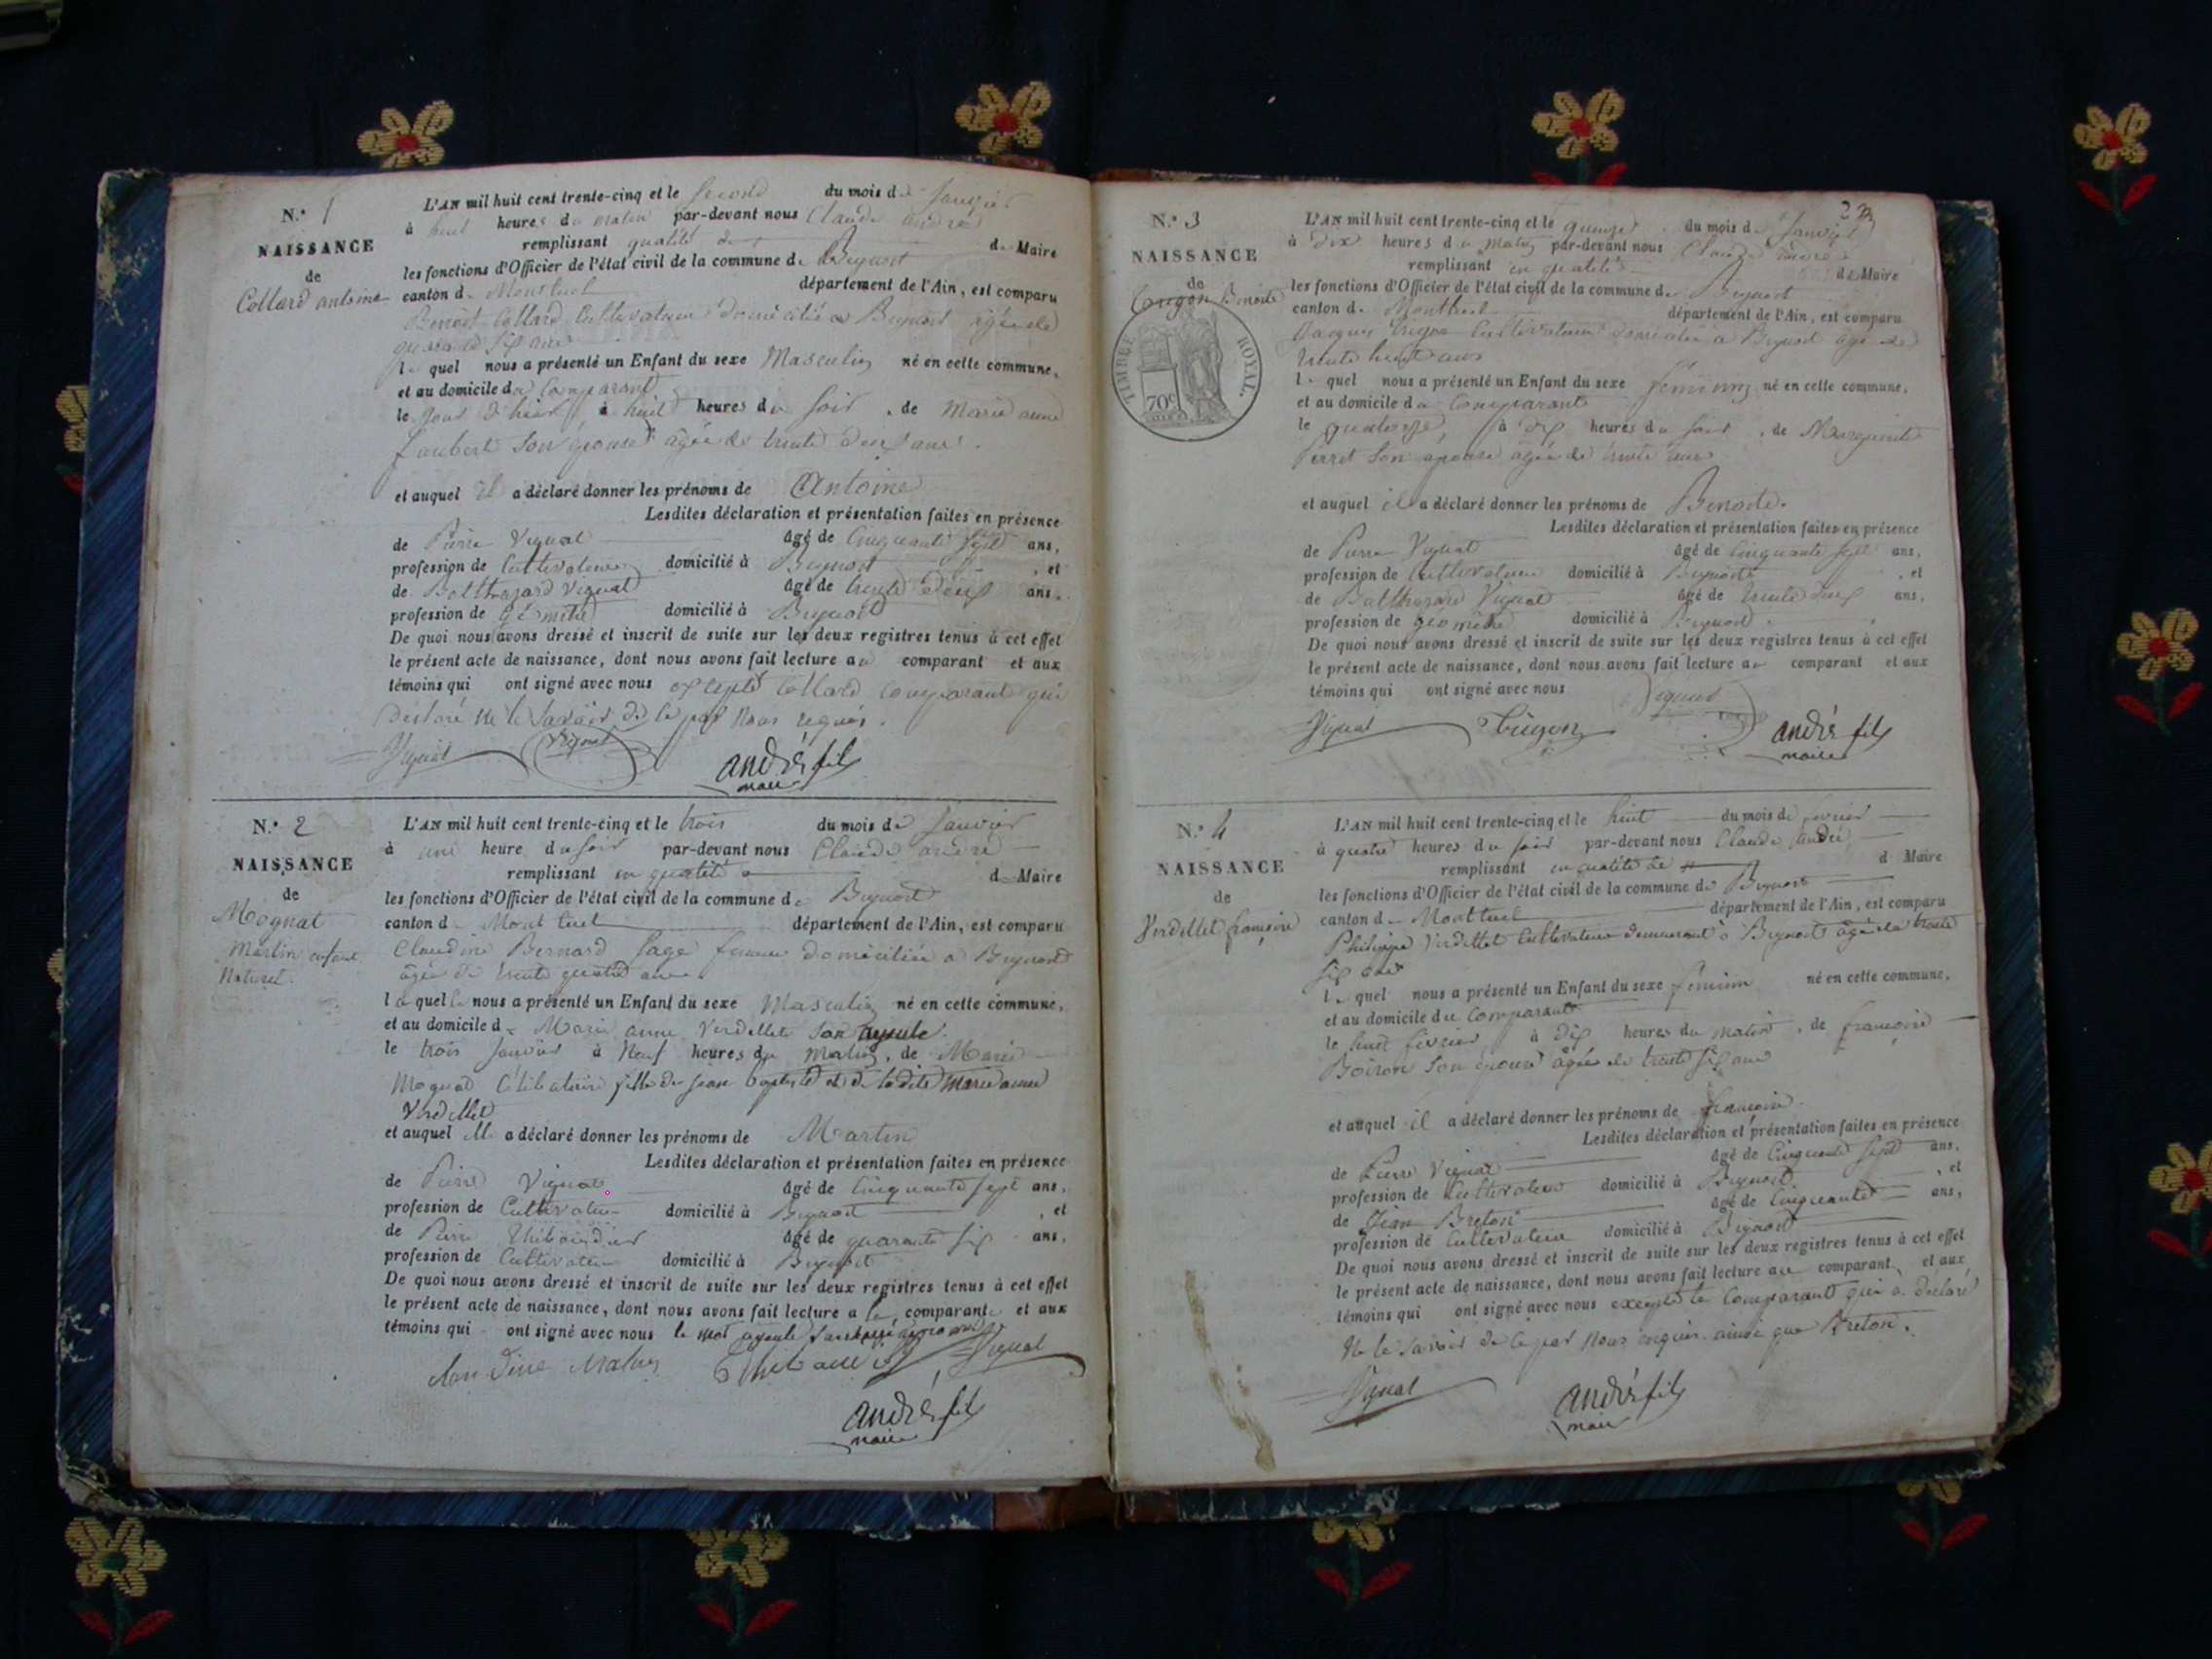 N.° 1
NAISSANCE
de
Collard antoine
L'AN mil huit cent trente-cinq et le second du mois de Janvier
à huit heures du matin par-devant nous Claude andré
remplissant qualité de Maire
les fonctions d'Officier de l'état civil de la commune de Beynost
canton de Montluel département de l'Ain, est comparu
Benoit Collard Cultivateur domicilié a Beynost âgé de
quarante six ans
le quel nous a présenté un Enfant du sexe Masculin né en cette commune,
et au domicile du Comparant
le jour d'hier à huit heures du soir, de Marie anne
Joubert son épouse âgée de trente deux ans.
et auquel il a déclaré donner les prénoms de Antoine
Lesdites déclaration et présentation faites en présence
de Pierre Vignat âgé de Cinquante sept ans,
profession de Cultivateur domicilié à Beynost, et
de Balthazard Vignat âgé de trente deux ans,
profession de géomètre domicilié à Beynost
De quoi nous avons dressé et inscrit de suite sur les deux registres tenus à cet effet
le présent acte de naissance, dont nous avons fait lecture au comparant et aux
témoins qui ont signé avec nous excepté Collard Comparant qui a
déclaré ne le savoir de ce par nous requis.
Vignat Vignat andré fils
maire
N.° 2
NAISSANCE
de
Mognat
Martin enfant
Naturel.
L'AN mil huit cent trente-cinq et le trois du mois de Janvier
à une heure du soir par-devant nous Claude andré
remplissant en qualité de Maire
les fonctions d'Officier de l'état civil de la commune de Beynost
canton de Montluel département de l'Ain, est comparu
Claudine Bernard Sage femme domiciliée a Beynost
âgée de trente quatre ans
la quelle nous a présenté un Enfant du sexe Masculin né en cette commune,
et au domicile de Marie anne Verdellet son ayeule.
le trois janvier à Neuf heures du matin, de Marie
Mognat Célibataire fille de jean baptiste et de ladite Marie anne
Verdellet
et auquel elle a déclaré donner les prénoms de Martin
Lesdites déclaration et présentation faites en présence
de Pierre Vignat âgé de Cinquante sept ans,
profession de Cultivateur domicilié à Beynost, et
de Pierre Thibaudier âgé de quarante six ans,
profession de Cultivateur domicilié à Beynost
De quoi nous avons dressé et inscrit de suite sur les deux registres tenus à cet effet
le présent acte de naissance, dont nous avons fait lecture a la comparante et aux
témoins qui ont signé avec nous le mot ayeule surchargé approuvé
Thibaudier Vignat
andré fils
maire
23
N.° 3
NAISSANCE
de
Trigon Benoite
TIMBRE ROYAL.
70c
L'AN mil huit cent trente-cinq et le quinze du mois de Janvier
à dix heures du matin par-devant nous Claude andré
remplissant en qualité de Maire
les fonctions d'Officier de l'état civil de la commune de Beynost
canton de Montluel département de l'Ain, est comparu
Jacques Trigon Cultivateur domicilié a Beynost âgé de
trente huit ans
le quel nous a présenté un Enfant du sexe féminin né en cette commune,
et au domicile du Comparant
le quatorze, à dix heures du soir, de Marguerite
Perret son épouse âgée de trente ans
et auquel il a déclaré donner les prénoms de Benoite.
Lesdites déclaration et présentation faites en présence
de Pierre Vignat âgé de Cinquante sept ans,
profession de Cultivateur domicilié à Beynost, et
de Balthazard Vignat âgé de trente deux ans,
profession de géomètre domicilié à Beynost.
De quoi nous avons dressé et inscrit de suite sur les deux registres tenus à cet effet
le présent acte de naissance, dont nous avons fait lecture au comparant et aux
témoins qui ont signé avec nous
Vignat Trigon Vignat andré fils
maire
N.° 4
NAISSANCE
de
Verdellet françoise
L'AN mil huit cent trente-cinq et le huit du mois de février
à quatre heures du soir par-devant nous Claude andré
remplissant en qualité de d Maire
les fonctions d'Officier de l'état civil de la commune de Beynost
canton de Montluel département de l'Ain, est comparu
Philippe Verdellet Cultivateur demeurant a Beynost âgé de trente
six ans
le quel nous a présenté un Enfant du sexe féminin né en cette commune,
et au domicile du Comparant
le huit février à dix heures du matin, de françoise
Boiron son épouse âgée de trente six ans
et auquel il a déclaré donner les prénoms de françoise.
Lesdites déclaration et présentation faites en présence
de Pierre Vignat âgé de Cinquante sept ans,
profession de Cultivateur domicilié à Beynost, et
de Jean Breton âgé de Cinquante ans,
profession de Cultivateur domicilié à Beynost
De quoi nous avons dressé et inscrit de suite sur les deux registres tenus à cet effet
le présent acte de naissance, dont nous avons fait lecture au comparant, et aux
témoins qui ont signé avec nous excepté le Comparant qui a déclaré
Ne le savoir de ce par nous requis ainsi que Breton.
Vignat andré fils
maire